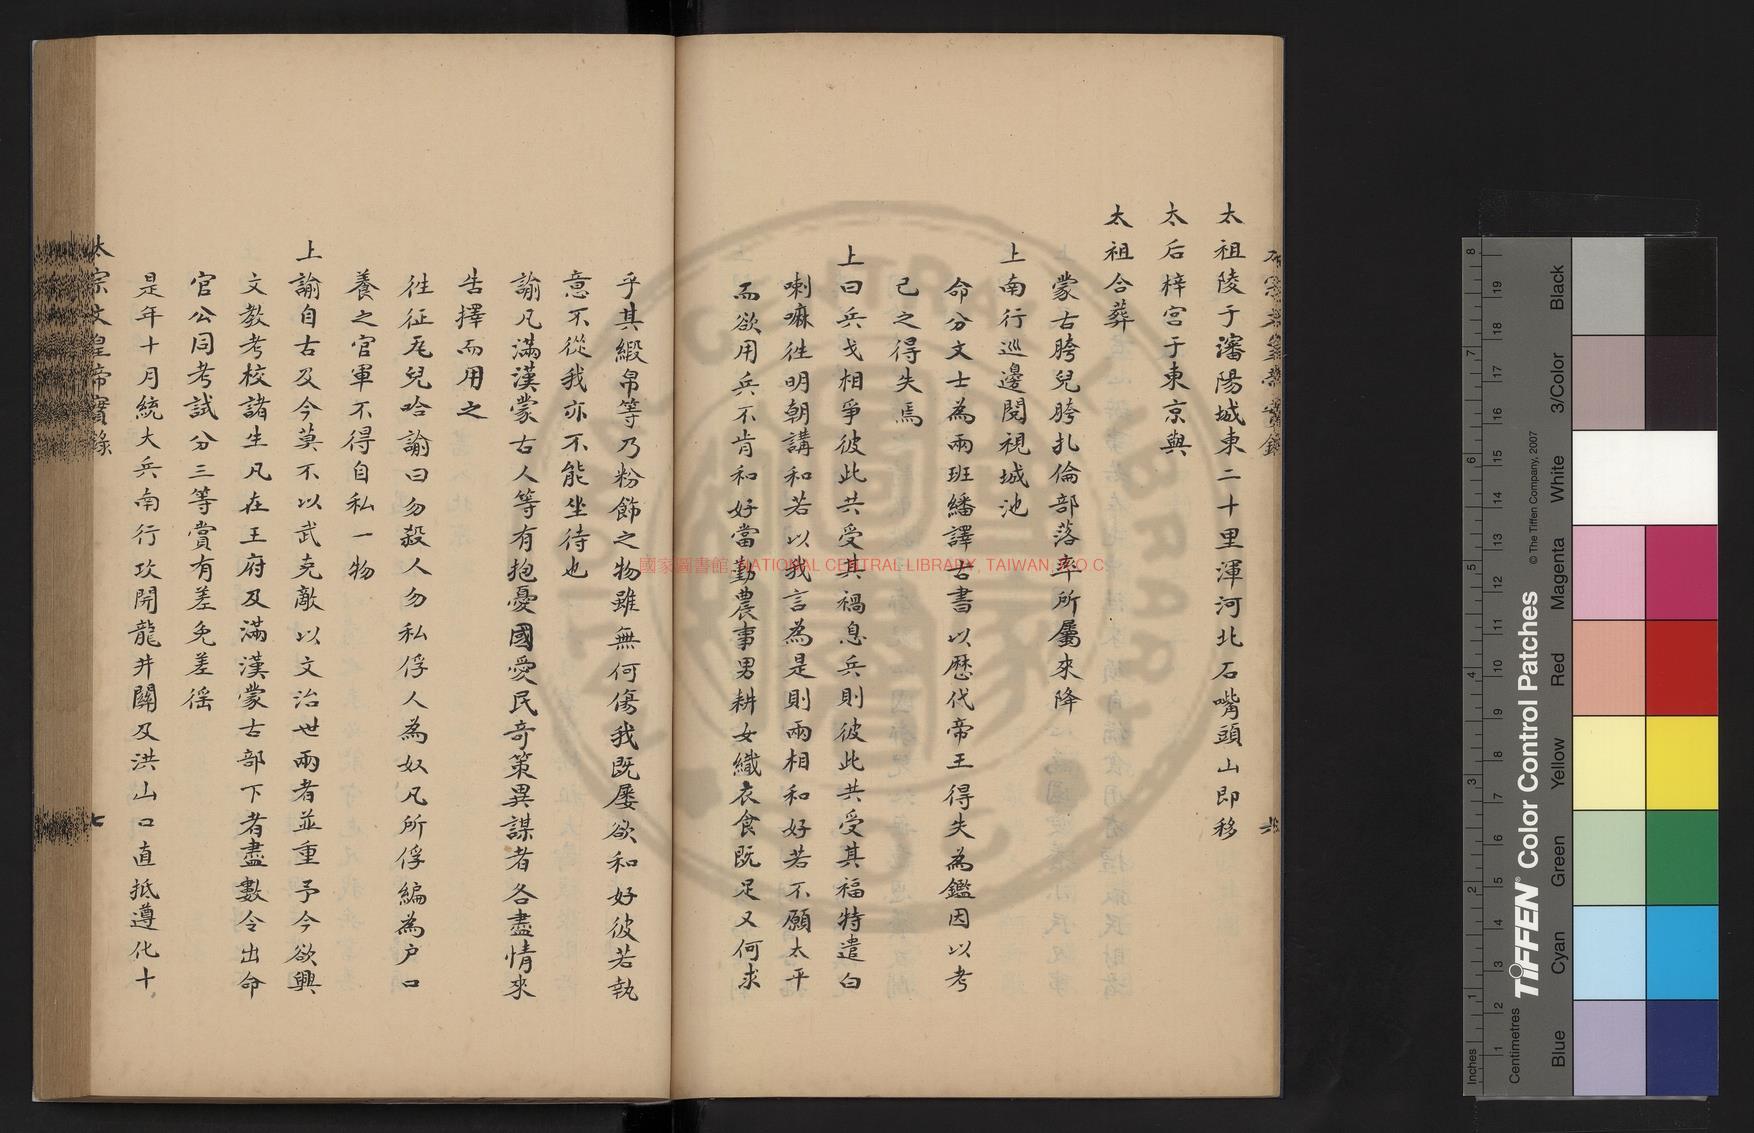 太祖陵于瀋陽城東二十里渾河北石嘴頭山即移
太后梓宮于東京與
太祖合葬
蒙古胯兒胯扎倫部落率所屬來降
上南行巡邊閱視城池
命分文士為兩班繙譯古書以歷代帝王得失為鑑因以考
己之得失焉
上曰兵戈相爭彼此共受其禍息兵則彼此共受其福特遣白
喇嘛徃明朝講和若以我言為是則兩相和好若不願太平
而欲用兵不肯和好當勤農事男耕女織衣食既足又何求
乎其緞帛等乃粉飾之物雖無何傷我既屡欲和好彼若執
意不從我亦不能坐待也
諭凡滿漢蒙古人等有抱憂國愛民奇策異謀者各盡情來
告擇而用之
徃征死兒哈諭曰勿殺人勿私俘人為奴凡所俘編為户口
養之官軍不得自私一物
上諭自古及今莫不以武克敵以文治世兩者並重予今欲興
文教考校諸生凡在王府及滿漢蒙古部下者盡數令出命
官公同考試分三等賞有差免差徭
是年十月統大兵南行攻開龍井關及洪山口直抵遵化十
太宗文皇帝實錄
七
國家圖書館, NATIONAL CENTRAL LIBRARY, TAIWAN, R.O.C.
Inches
Centimetres
TIFFEN Color Control Patches
© The Tiffen Company, 2007
Blue
Cyan
Green
Yellow
Red
Magenta
White
3/Color
Black